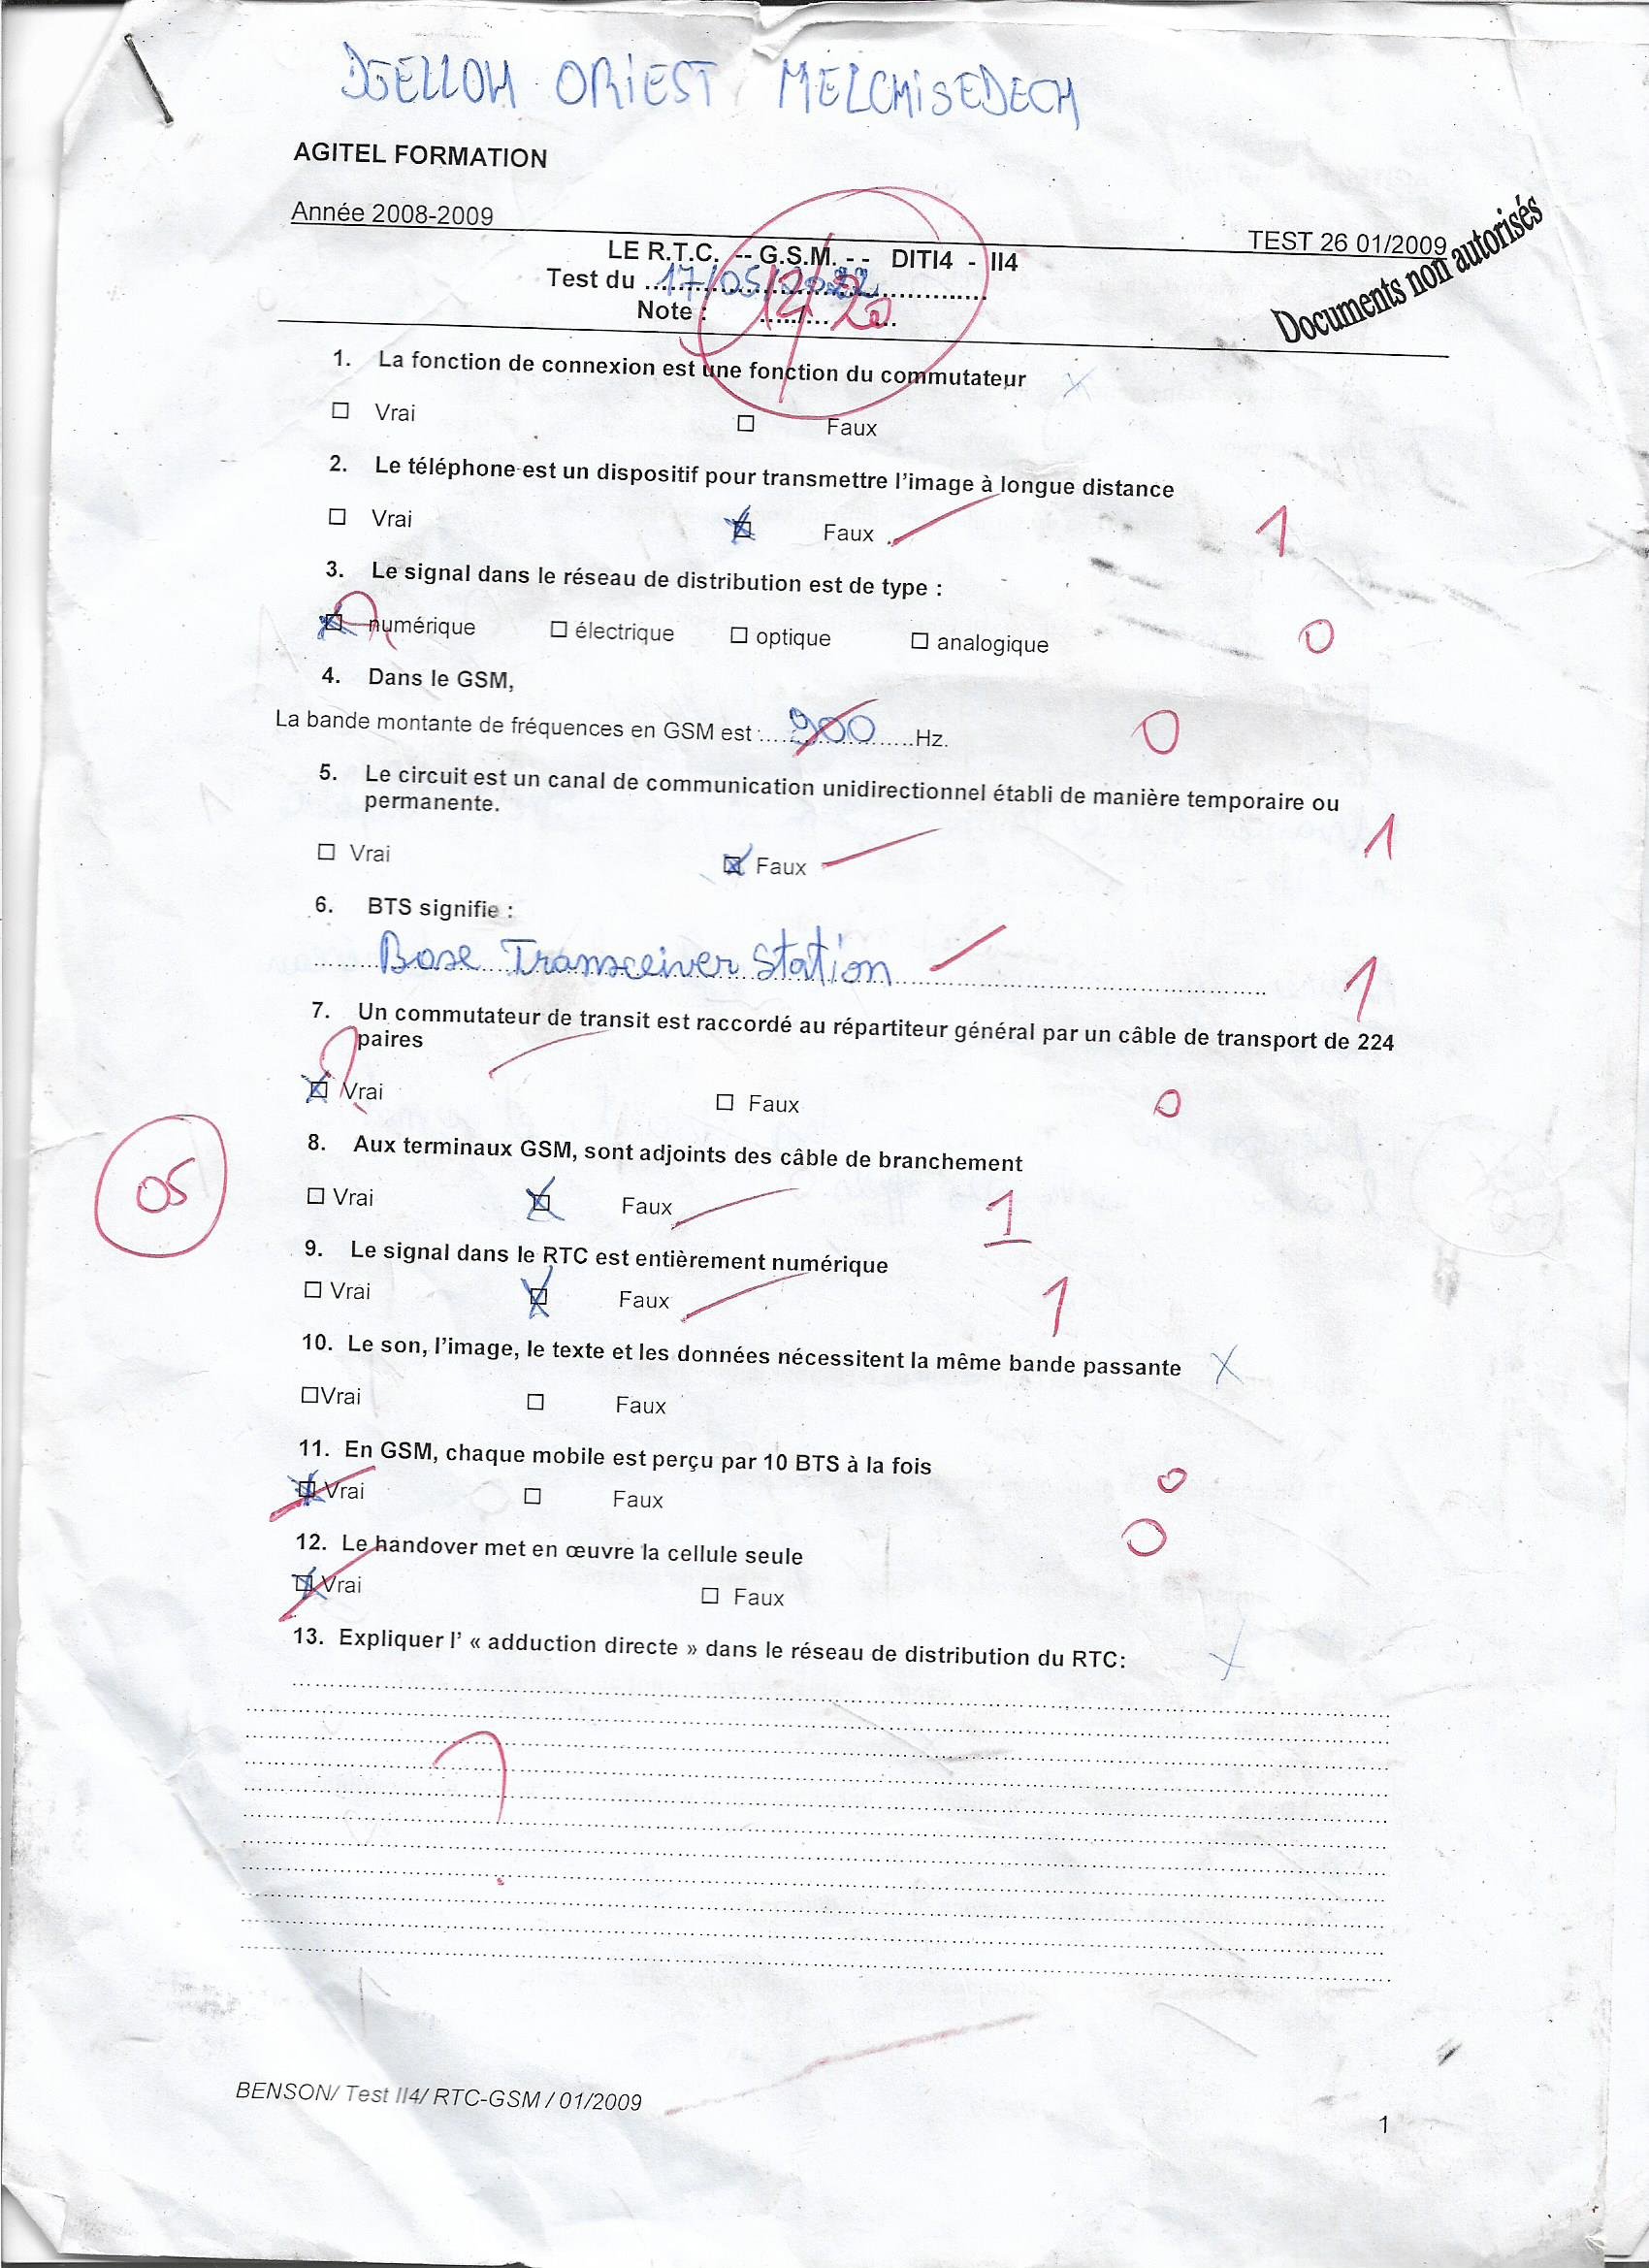 DJELLOH ORIEST MELCHISEDECH
AGITEL FORMATION
Année 2008-2009
TEST 26 01/2009
Documents non autorisés
LE R.T.C. -- G.S.M. - - DITI4 - II4
Test du 17/05/2022
Note : 12/20
1. La fonction de connexion est une fonction du commutateur X
□ Vrai □ Faux
2. Le téléphone est un dispositif pour transmettre l'image à longue distance
□ Vrai □ Faux 1
3. Le signal dans le réseau de distribution est de type :
□ numérique □ électrique □ optique □ analogique 0
4. Dans le GSM,
La bande montante de fréquences en GSM est : 900 Hz. 0
5. Le circuit est un canal de communication unidirectionnel établi de manière temporaire ou
permanente. 1
□ Vrai □ Faux
6. BTS signifie :
Base Transceiver Station 1
7. Un commutateur de transit est raccordé au répartiteur général par un câble de transport de 224
paires
□ Vrai □ Faux 0
05
8. Aux terminaux GSM, sont adjoints des câble de branchement
□ Vrai □ Faux 1
9. Le signal dans le RTC est entièrement numérique
□ Vrai □ Faux 1
10. Le son, l'image, le texte et les données nécessitent la même bande passante X
□Vrai □ Faux
11. En GSM, chaque mobile est perçu par 10 BTS à la fois
□ Vrai □ Faux 0
12. Le handover met en œuvre la cellule seule 0
□ Vrai □ Faux
13. Expliquer l' « adduction directe » dans le réseau de distribution du RTC: X
?
BENSON/ Test II4/ RTC-GSM / 01/2009
1